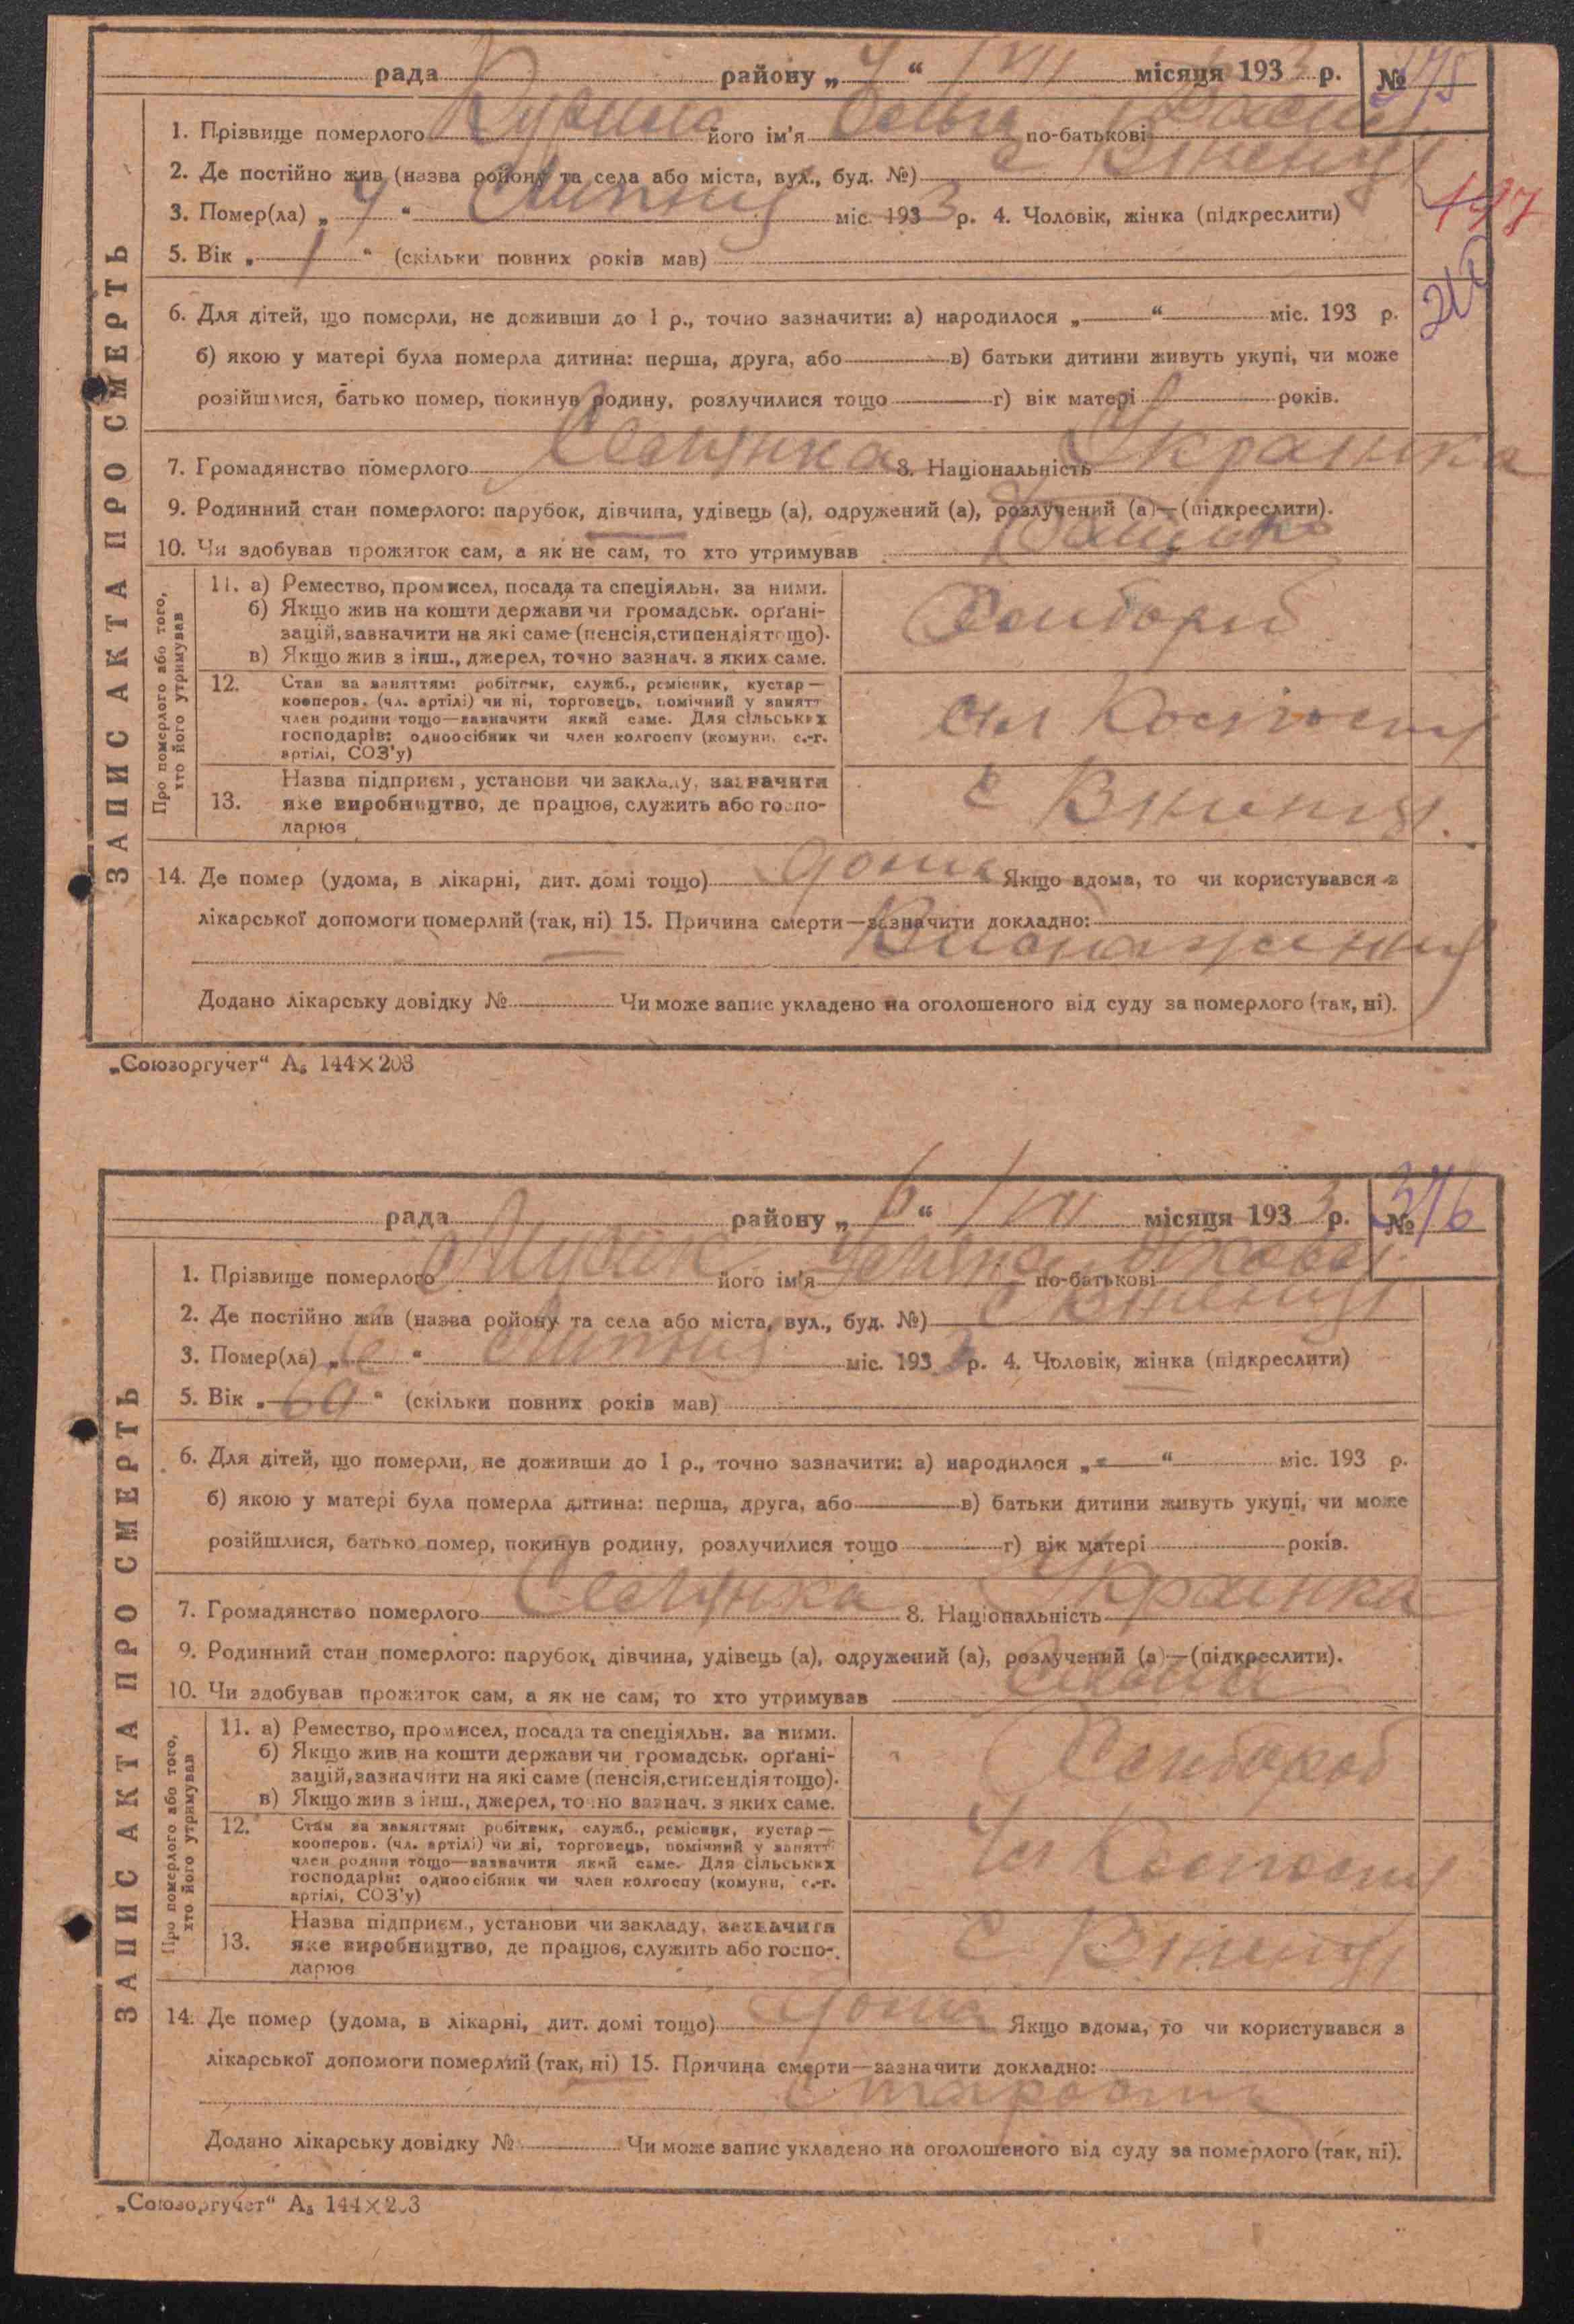 рада району „ 4 “ / VII місяця 1933 р. № 375
1. Прізвище померлого його ім'я Ольга по-батькові
2. Де постійно жив (назва ройону та села або міста, вул., буд. №) с
3. Помер(ла) „ 4 “ Липня міс. 1933 р. 4. Чоловік, жінка (підкреслити)
197
5. Вік „ 1 “ (скільки повних років мав)
6. Для дітей, що померли, не доживши до 1 р., точно зазначити: а) народилося „ — “ міс. 193 р.
б) якою у матері була померла дитина: перша, друга, або в) батьки дитини живуть укупі, чи може
розійшлися, батько помер, покинув родину, розлучилися тощо г) вік матері років.
7. Громадянство померлого Селянка 8. Національність Украинка
9. Родинний стан померлого: парубок, дівчина, удівець (а), одружений (а), розлучений (а)—(підкреслити).
10. Чи здобував прожиток сам, а як не сам, то хто утримував Батько
ЗАПИС АКТА ПРО СМЕРТЬ
Про померлого або того, хто його утримував
11. а) Ремество, промисел, посада та спеціяльн. за ними.
б) Якщо жив на кошти держави чи громадськ. орґані-
зацій, зазначити на які саме (пенсія, стипендія тощо).
в) Якщо жив з інш., джерел, точно зазнач. з яких саме.
Хлибороб
12. Стан за заняттям: робітник, служб., ремісник, кустар—
кооперов. (чл. артілі) чи ні, торговець, помічний у занятт
член родини тощо—зазначити який саме. Для сільських
господарів: одноосібник чи член колгоспу (комуни, с.-г.
артілі, СОЗ'у)
Чл Колгоспу
13. Назва підприєм., установи чи закладу, зазначити
яке виробництво, де працює, служить або госпо-
дарює
с
14. Де помер (удома, в лікарні, дит. домі тощо) дома Якщо вдома, то чи користувався з
лікарської допомоги померлий (так, ні) 15. Причина смерти—зазначити докладно:
Виснаження
Додано лікарську довідку № Чи може запис укладено на оголошеного від суду за померлого (так, ні).
„Союзоргучет“ А₅ 144×203
рада району „ 6 “ / VII місяця 1933 р. № 376
1. Прізвище померлого його ім'я Уляна по-батькові
2. Де постійно жив (назва ройону та села або міста, вул., буд. №) с
3. Помер(ла) „ 6 “ Липня міс. 1933 р. 4. Чоловік, жінка (підкреслити)
5. Вік „ 60 “ (скільки повних років мав)
6. Для дітей, що померли, не доживши до 1 р., точно зазначити: а) народилося „ — “ міс. 193 р.
б) якою у матері була померла дитина: перша, друга, або в) батьки дитини живуть укупі, чи може
розійшлися, батько помер, покинув родину, розлучилися тощо г) вік матері років.
7. Громадянство померлого Селянка 8. Національність Украинка
9. Родинний стан померлого: парубок, дівчина, удівець (а), одружений (а), розлучений (а)—(підкреслити).
10. Чи здобував прожиток сам, а як не сам, то хто утримував Сама
ЗАПИС АКТА ПРО СМЕРТЬ
Про померлого або того, хто його утримував
11. а) Ремество, промисел, посада та спеціяльн. за ними.
б) Якщо жив на кошти держави чи громадськ. орґані-
зацій, зазначити на які саме (пенсія, стипендія тощо).
в) Якщо жив з інш., джерел, точно зазнач. з яких саме.
Хлибороб
12. Стан за заняттям: робітник, служб., ремісник, кустар—
кооперов. (чл. артілі) чи ні, торговець, помічний у занятт
член родини тощо—зазначити який саме. Для сільських
господарів: одноосібник чи член колгоспу (комуни, с.-г.
артілі, СОЗ'у)
Чл Колгоспу
13. Назва підприєм., установи чи закладу, зазначити
яке виробництво, де працює, служить або госпо-
дарює
с
14. Де помер (удома, в лікарні, дит. домі тощо) дома Якщо вдома, то чи користувався з
лікарської допомоги померлий (так, ні) 15. Причина смерти—зазначити докладно:
Старость
Додано лікарську довідку № Чи може запис укладено на оголошеного від суду за померлого (так, ні).
„Союзоргучет“ А₅ 144×203